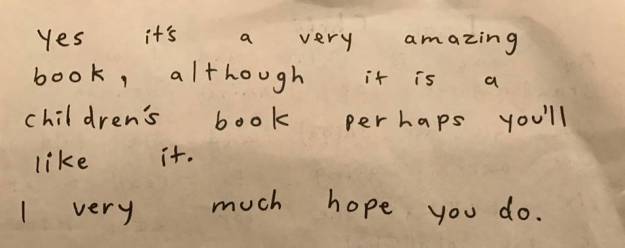 Yes it's a very amazing
book, although it is a
children's book perhaps you'll
like it.
I very much hope you do.